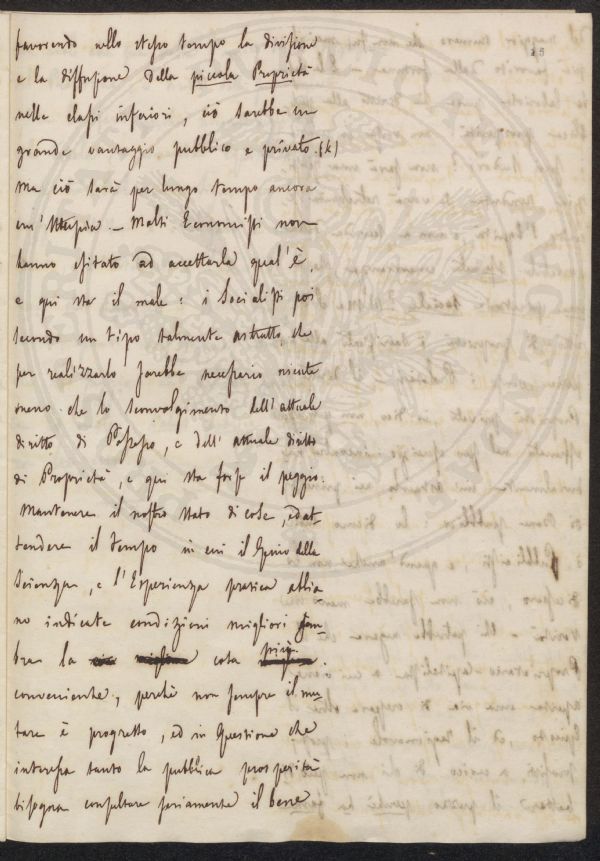 15
favorendo nello stesso tempo la divisione
e la diffusione della piccola Proprietà
nelle classi inferiori, ciò sarebbe un
grande vantaggio pubblico e privato (k)
ma ciò sarà per lungo tempo ancora
un'Utopia. - Molti Economisti non
hanno esitato ad accettarla qual'è,
e qui sta il male: i Socialisti poi
secondo un tipo talmente astratto, che
per realizzarlo sarebbe necessario niente
meno che lo sconvolgimento dell'attuale
diritto di Possesso, e dell'attuale diritto
di Proprietà, e qui sta forse il peggio.
Mantenere il nostro stato di cose, ed at-
tendere il tempo in cui il Genio della
Scienza, e l'Esperienza pratica abbia
no indicate condizioni migliori sem-
bra la cosa più
conveniente, perchè non sempre il mu
tare è progresso, ed in Questione che
interessa tanto la pubblica prosperità
bisogna consultare seriamente il bene